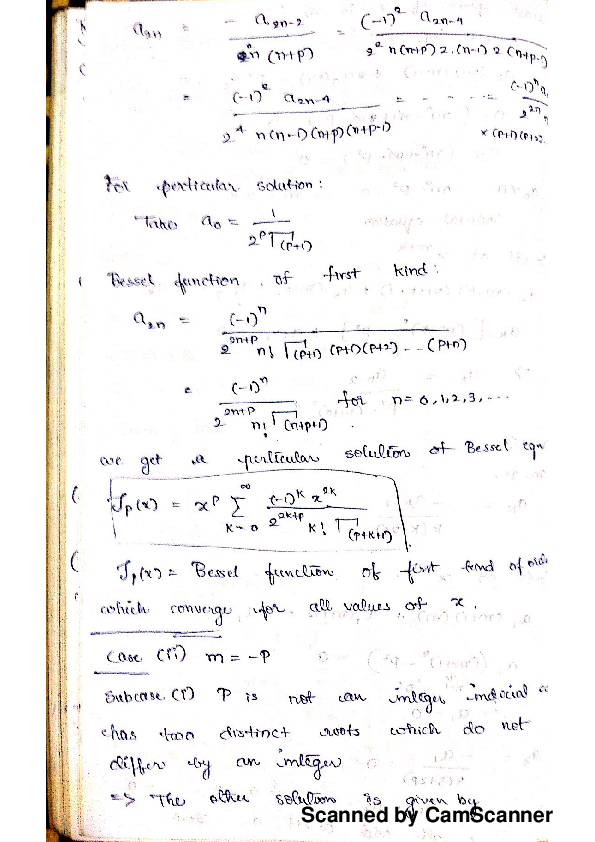 a₂ₙ = - a₂ₙ₋₂ / 2² n (n+p) = (-1)² a₂ₙ₋₄ / 2² n(n+p) 2.(n-1) 2 (n+p-1)
= (-1)² a₂ₙ₋₄ / 2⁴ n(n-1)(n+p)(n+p-1) = - - - = (-1)ⁿ a / 2²ⁿ n × (p+1)(p+2)..
For perticular solution:
Take a₀ = 1 / 2ᵖ Γ(p+1)
Bessel function of first kind:
a₂ₙ = (-1)ⁿ / 2²ⁿ⁺ᵖ n! Γ(p+1) (p+1)(p+2) ... (p+n)
= (-1)ⁿ / 2²ⁿ⁺ᵖ n! Γ(n+p+1) . for n = 0,1,2,3,...
we get a perticular solution of Bessel eqn
Jp(x) = xᵖ ∑ₖ₌₀^∞ (-1)ᵏ x²ᵏ / 2²ᵏ⁺ᵖ k! Γ(p+k+1)
Jp(x) = Bessel function of first kind of
which converge for all values of x.
Case (ii) m = -p
Subcase (i) P is not an integer indicial
has two distinct roots which do not
differ by an integer
=> The other solution is given by
Scanned by CamScanner